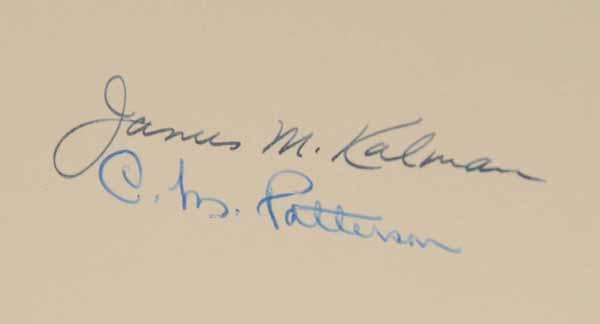 James M. Kalman
C. M. Patterson